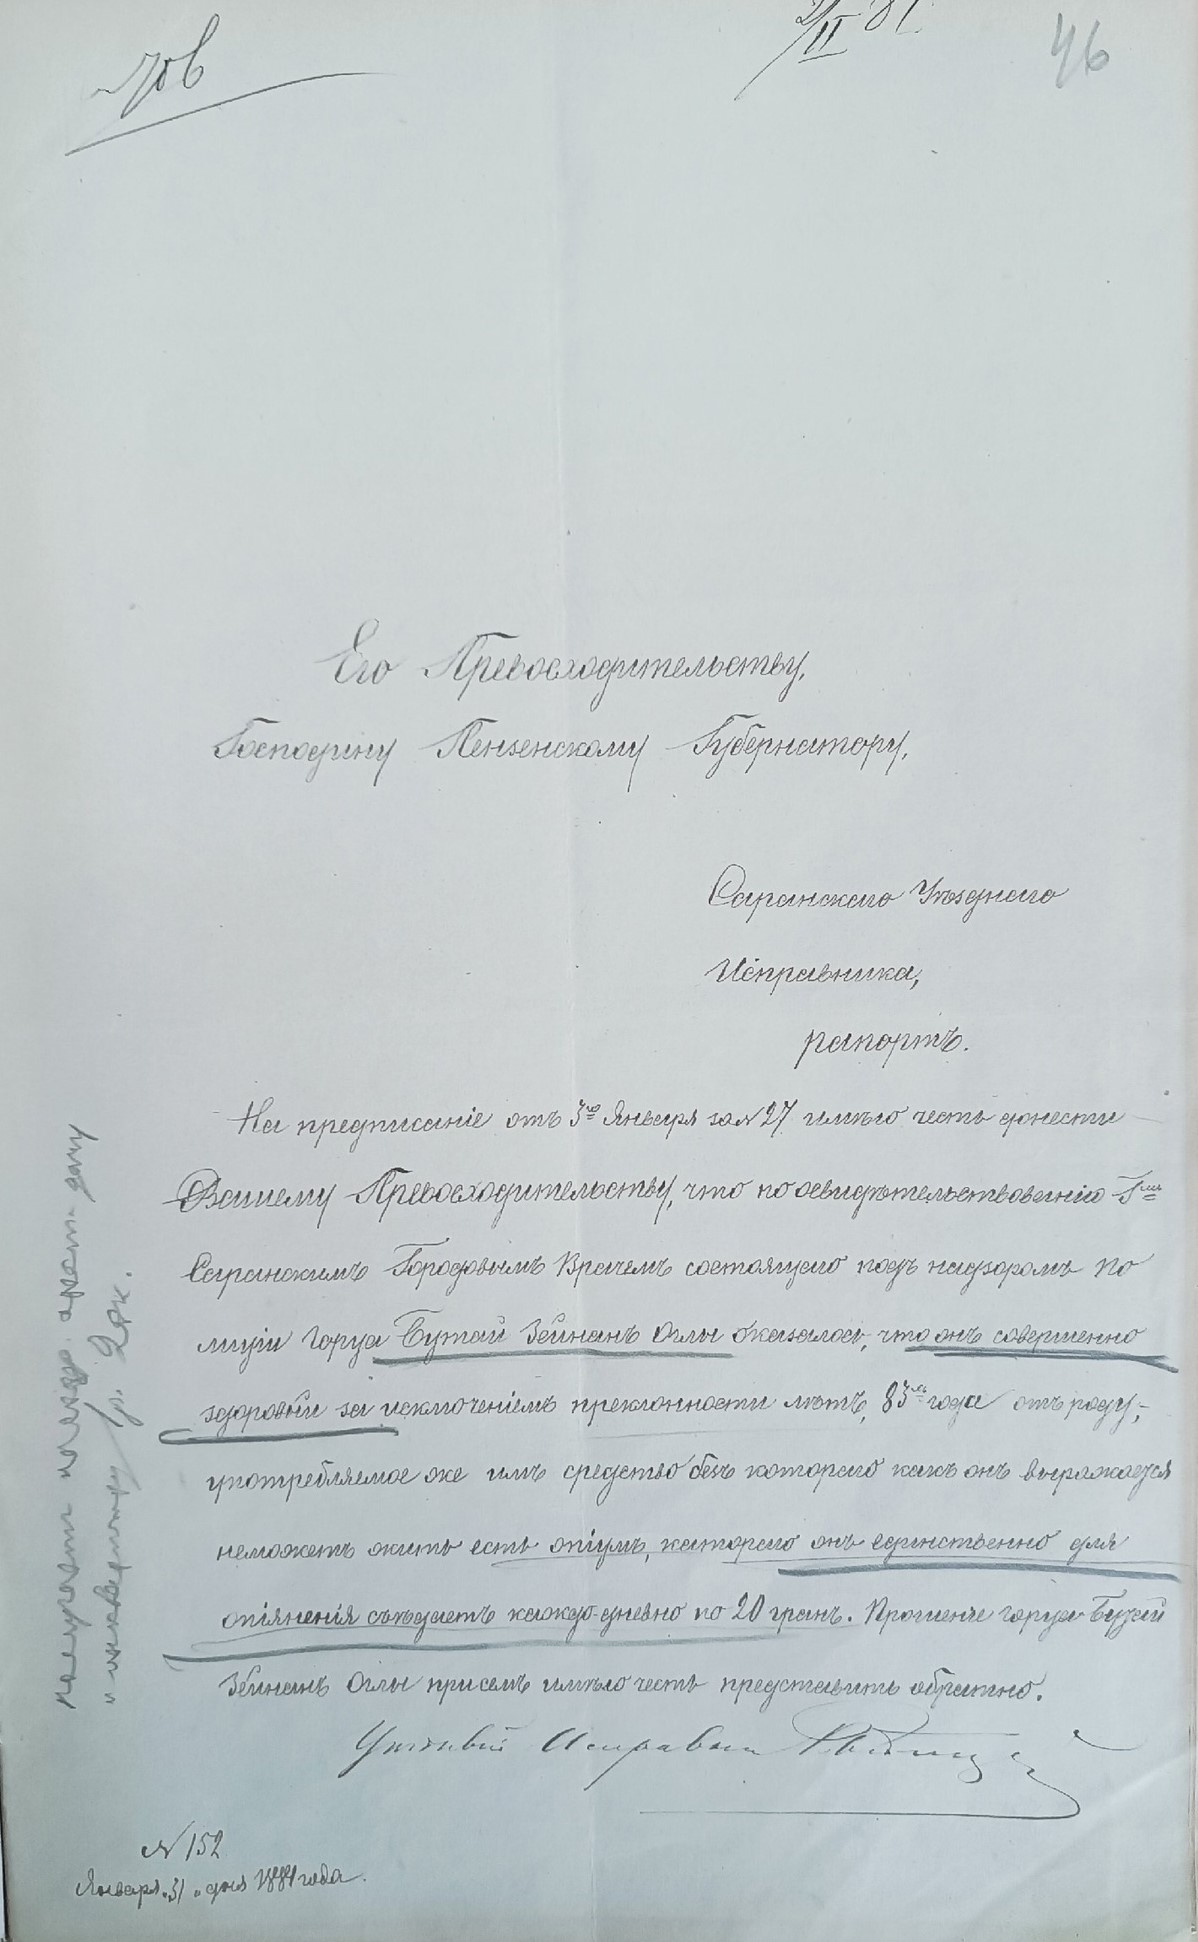 706
2/II 81.
46
Его Превосходительству,
Господину Пензенскому Губернатору,
Саранскаго Уѣзднаго
Исправника,
рапортъ.
На предписаніе отъ 3го Января за № 27 имѣю честь донести
Вашему Превосходительству, что по освидѣтельствованію Г.мъ
Саранскимъ Городовымъ Врачемъ состоящаго подъ надзоромъ по
лиціи горца Бутай Зейнанъ Оглы оказалось, что онъ совершенно
здоровый за исключеніемъ преклонности лѣтъ, 83хъ года отъ роду,
употребляемое же имъ средство безъ котораго какъ онъ выражается
неможетъ жить есть опіумъ, котораго онъ единственно для
опіяненія съѣдаетъ каждо-дневно по 20 гранъ. Прошеніе горца Бутай
Зейнанъ Оглы присемъ имѣю честь представить обратно.
Уѣздный Исправник
№ 152
Января "31" дня 1881 года.